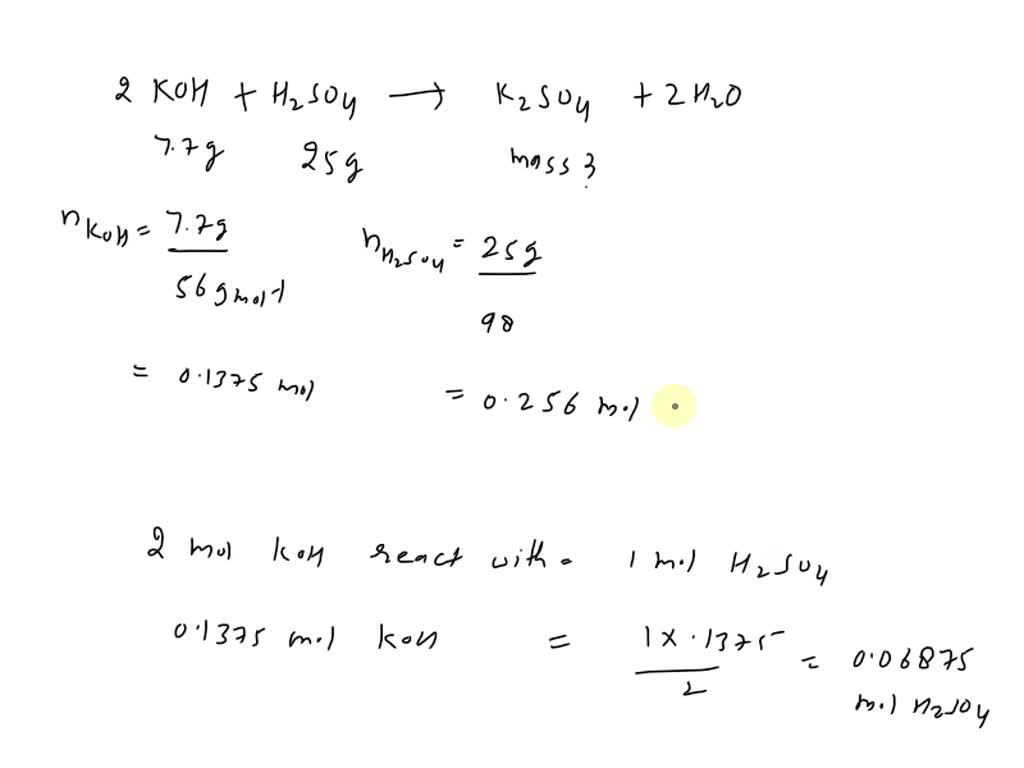 2 KOH + H₂SO₄ → K₂SO₄ + 2H₂O
7.7g 25g mass?
nKOH = 7.7g / 56 gmol-1
nH₂SO₄ = 25g / 98
= 0.1375 mol
= 0.256 mol
2 mol KOH react with = 1 mol H₂SO₄
0.1375 mol KOH = 1 x .1375 / 2 = 0.06875
mol H₂SO₄